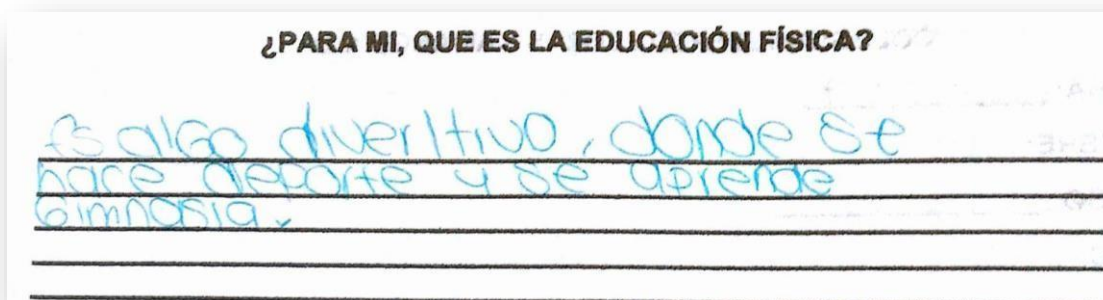 ¿PARA MI, QUE ES LA EDUCACIÓN FÍSICA?
Es algo diveritivo, donde se
hace deporte y se aprende
Gimnasia.